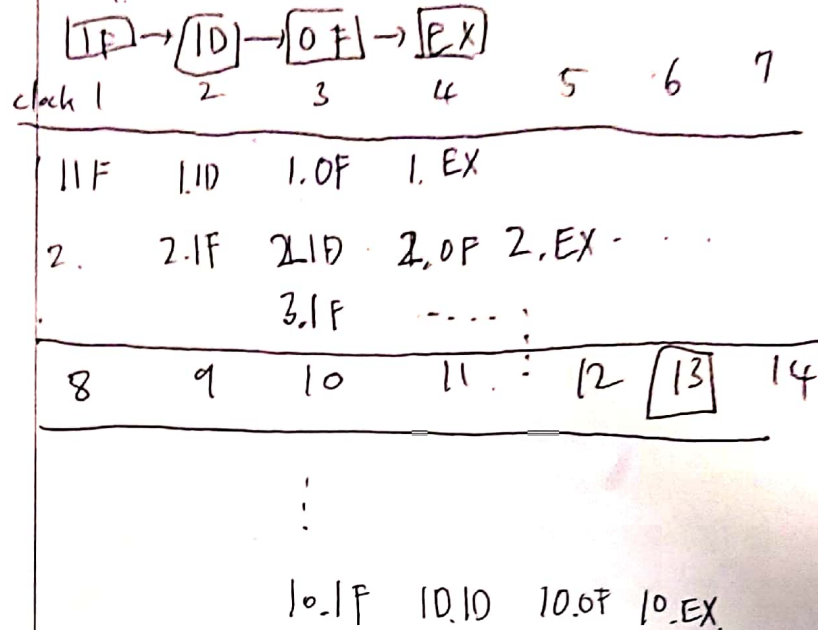 IF → ID → OF → EX
clock 1 2 3 4 5 6 7
1IF 1.ID 1.OF 1. EX
2. 2.IF 2.ID 2.OF 2.EX - . . .
3.IF -....
8 9 10 11. 12 13 14
10.IF 10.ID 10.OF 10.EX